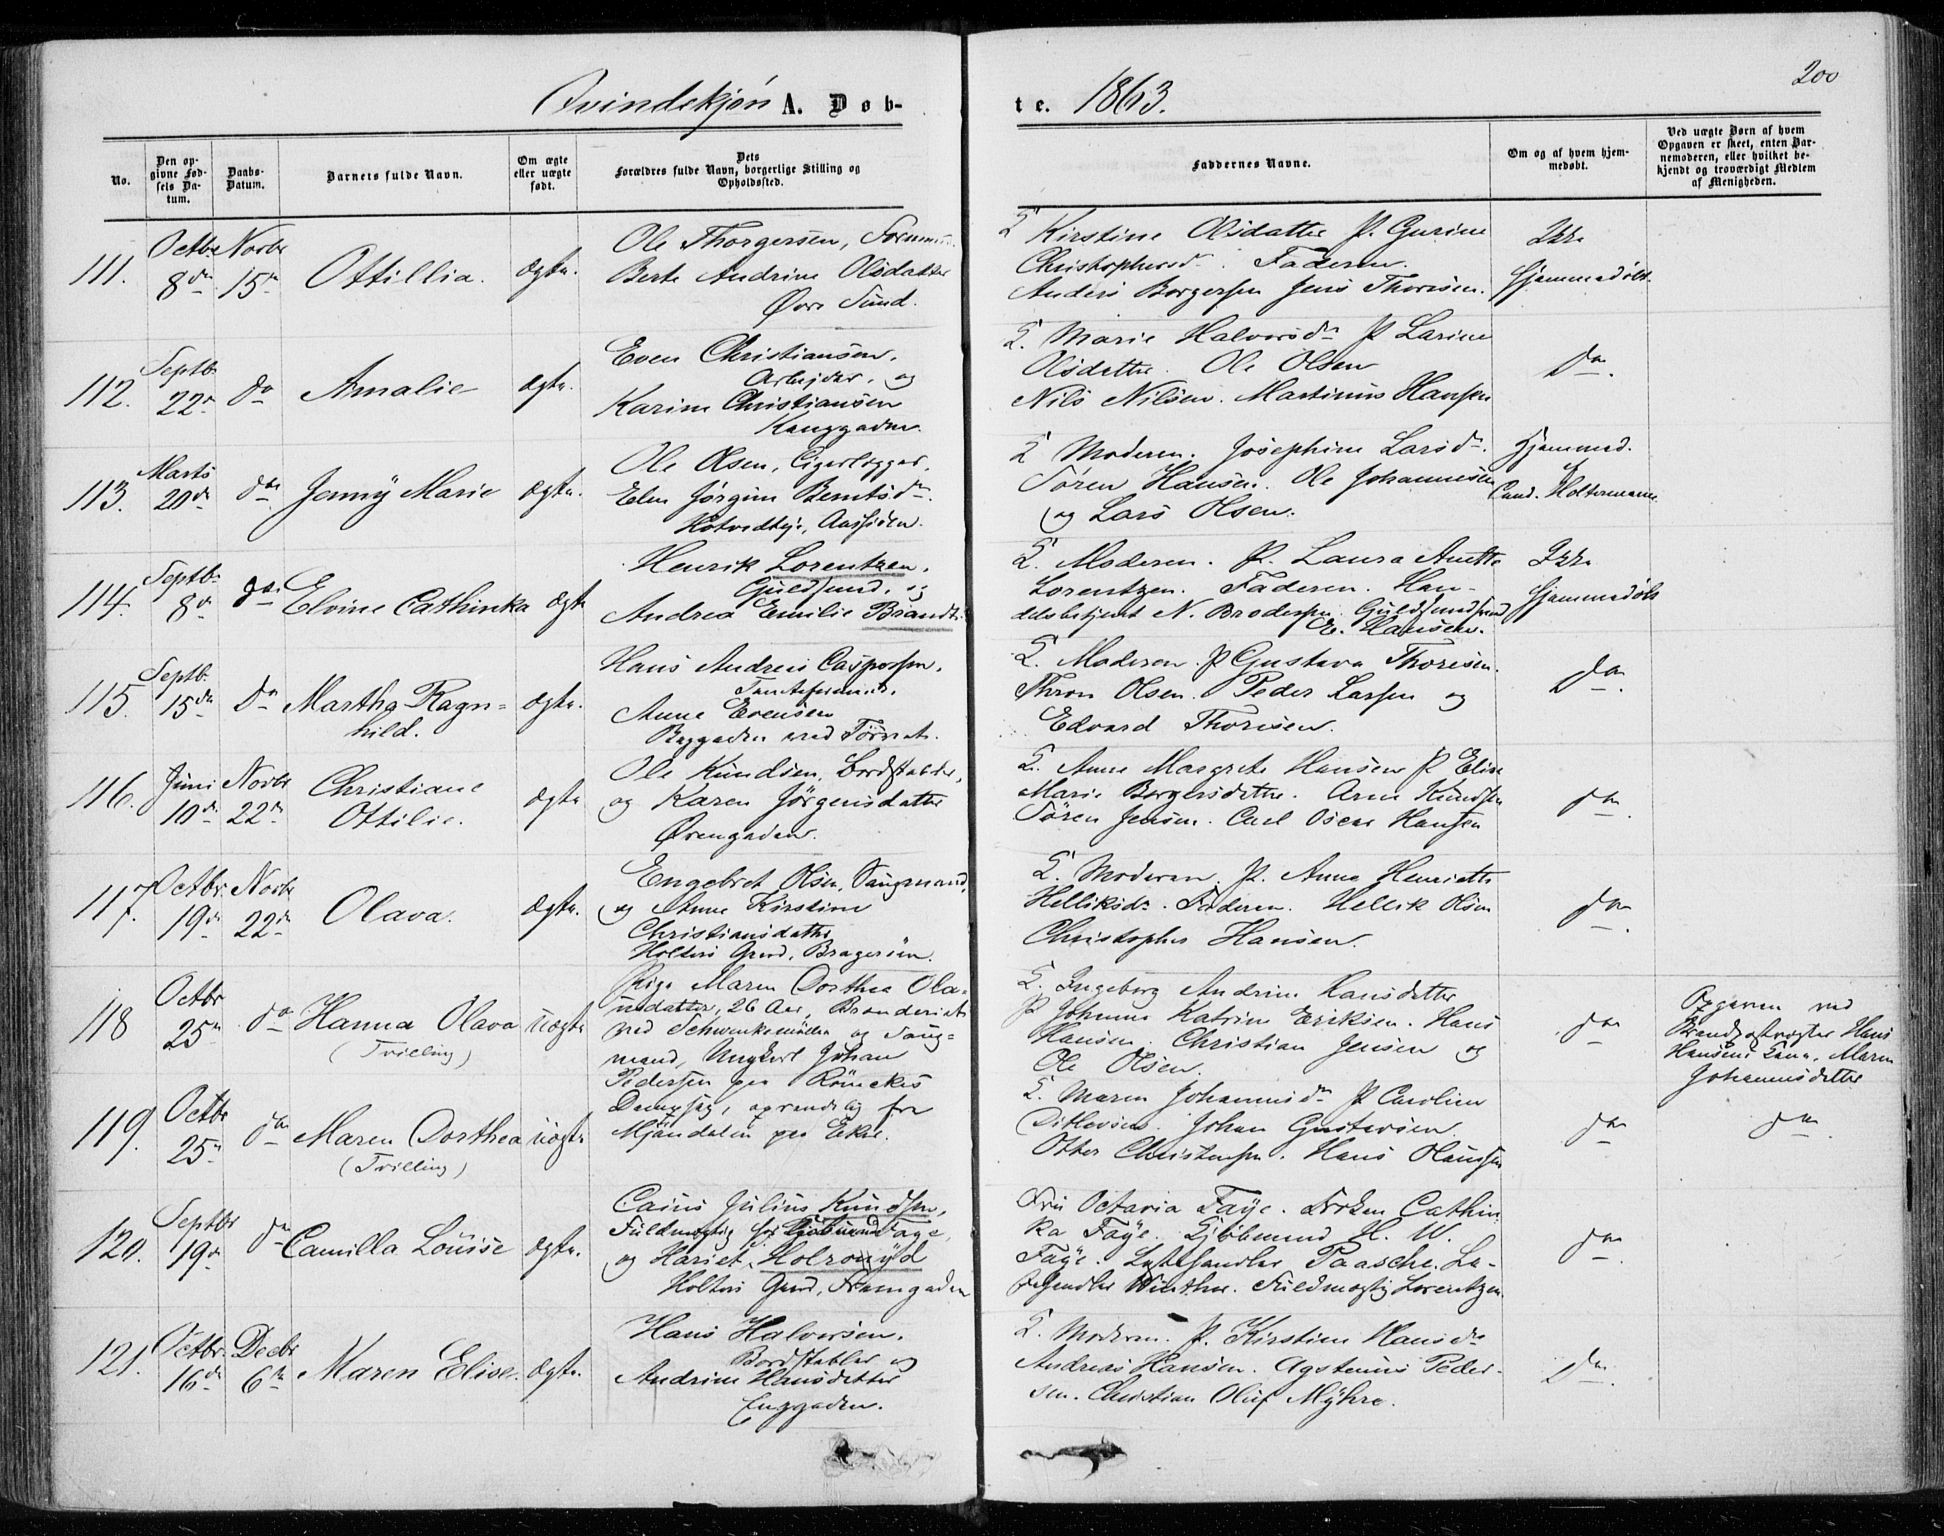 Qvindekjøn A. Døb-
te. 1863.
200
No.
Den opgivne Fødsels Datum.
Daabs-Datum.
Barnets fulde Navn.
Om ægte eller uægte født.
Dets Forældres fulde Navn, borgerlige Stilling og Opholdssted.
Faddernes Navne.
Om og af hvem hjemmedøbt.
Ved uægte Børn af hvem Opgaven er skeet, enten Barnemoderen, eller hvilket bekjendt og troværdigt Medlem af Menigheden.
111. Octbr 8de Novbr 15de Ottillia. ægte.
Ole Thorgersen,
Berte Andrine Olsdatter
Øvre Sund.
Kirstine Olsdatter P. Gurine
Christophersd. Faderen.
Anders Borgersen Jens Thoresen.
Ikke
Hjemmedøbt.
112. Septb. 22 do Amalie ægte.
Even Christiansen,
Arbejder, og
Karine Christiansen
Kanggaden.
Marie Halvorsdr P Larine
Olsdatter. Ole Olsen
Nils Nilsen. Martinus Hansen
do.
113. Marts 20de do. Jenny Marie ægte.
Ole Olsen, Cigerlægger,
Elen Jørgine Berntsdr.
Hotvedteje, Aassiden.
Moderen. Josephine Larsdr.
Søren Hansen. Ole Johannesen
og Lars Olsen.
Hjemmed.
Cand. Holtermann
114. Septb. 8de do. Elvine Cathinka ægte
Henrik Lorentzen,
Guldsmed, og
Andrea Emilie Brandt.
Moderen. P. Laura Anette
Lorentzen. Faderen. Han-
delsbetjent N. Brodersen. Guldsmedsvend
E. Hansen.
Ikke
Hjemmedøbt
115. Septb. 15de do Martha Ragn-
hild. ægte.
Hans Andreas Caspersen,
Anne Evensen
Baggaden
Moderen. P Gustava Thoresen.
Thron Olsen. Peder Larsen og
Edvard Thoresen.
do.
116. Juni 10de Novbr 22de Christiane
Ottilie. ægte
Ole Knudsen, Bordstabler,
og Karen Jørgensdatter
Ørengaden.
Anne Margrete Hansen P Elise
Marie Borgersdatter. Arne Knudsen
Søren Jensen. Carl Oscar Hansen
do.
117. Octbr. 19de Novbr 22de Olava. ægte.
Engebret Olsen, Saugmand,
og Anne Kirstine
Christiansdatter
Holters Gaard, Bragerøen.
Moderen. P. Anne Henriette
Helliksdr. Faderen. Hellik Olsen
Christopher Hansen.
do.
118 Octbr 25de do Hanna Olava uægte
(Tvilling)
Pige Maren Dorthea Ola-
usdatter, 26 Aar, Branderiet
ved Schwenkemøllen og Saug-
mand, Ungkarl Johan
Pedersen paa Rönekes
Dampsag, oprendelig fra
Mjøndalen paa Eker.
Ingeborg Andrine Hansdatter
P Johanne Katrine Eriksen. Hans
Hansen. Christian Jensen og
Ole Olsen.
do
Opgaven ved
Hans
Hansens Kone, Maren
Johannesdatter
119. Octbr 25de do Maren Dorthea uægte
(Tvilling)
Maren Johannesdr P Caroline
Ditlevsen. Johan Gustavsen.
Otter Christensen. Hans Hansen
do
do.
120. Septbr 19de do Camilla Louise ægte.
Caius Julius Knudsen,
Fuldmægtig for Kjøbmand Faye,
og Hariet Holroyd
Holters Gaard, Strømgaden
Fru Octavia Faÿe. Frøken Cathin-
ka Faÿe. Kjøbmand H. W.
Faÿe. Lysthandler Paasche. La-
gehandler Winther. Fuldmægtig Lorentzen.
do.
121. Octbr. 16de Decbr 6te Maren Elise. ægte.
Hans Halvorsen,
Bordstabler og
Andrine Hansdatter
Enggaden.
Moderen. P. Kirstine Hansdr
Andreas Hansen. Agstinus Peder-
sen. Christian Oluf Mÿhre.
do.